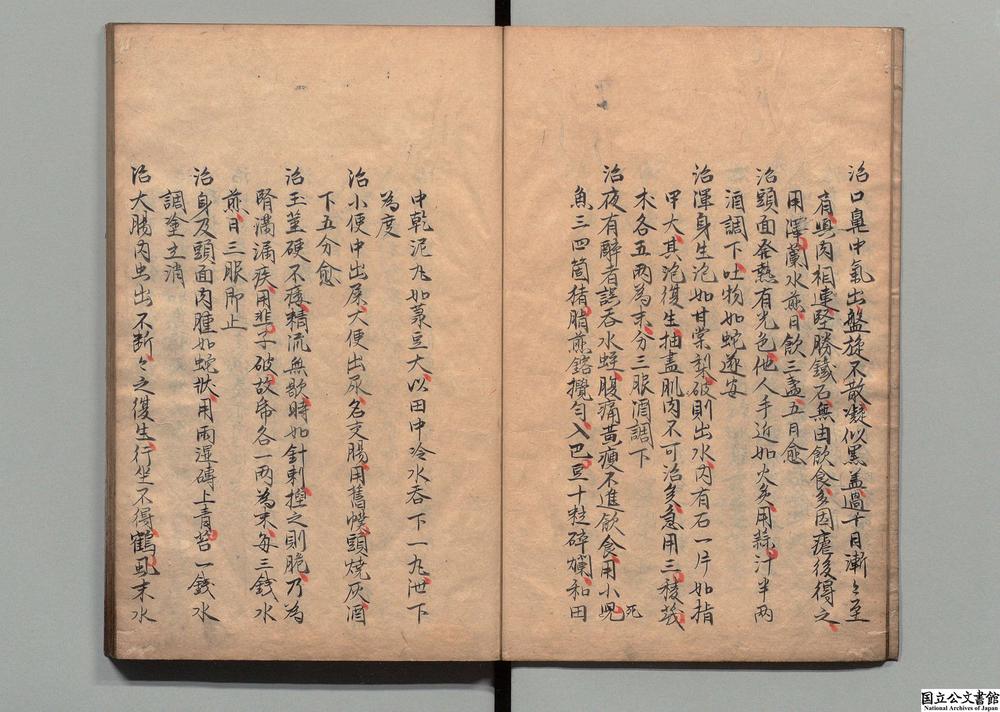 治口鼻中氣出盤旋不散凝似黑蓋過十日漸々至
肩與肉相連堅勝鐵石無由飲食多因瘧後得之
用澤蘭水煎日飲三盞五日愈
治頭面發熱有光色他人手近如火炙用蒜汁半兩
酒調下吐物如蛇遂安
治渾身生泡如甘棠梨破則出水內有石一片如指
甲大其泡復生抽盡肌肉不可治矣急用三稜莪
朮各五兩為末分三服酒調下
治夜有醉者誤吞水蛭腹痛黃瘦不進飲食用小兒 死
魚三四箇猪脂煎鎔攪匀入巴豆十粒碎爛和田
中乾泥丸如菉豆大以田中冷水吞下一丸泄下
為度
治小便中出屎大便出尿名交腸用舊幞頭燒灰酒
下五分愈
治玉莖硬不痿精流無歇時如針刺捏之則脆乃為
腎滿漏疾用韮子破故帋各一兩為末每三錢水
煎日三服即止
治身及頭面肉腫如蛇狀用雨湿磚上青苔一錢水
調塗立消
治大腸內虫出不断々之復生行坐不得鶴虱末水
国立公文書館
National Archives of Japan